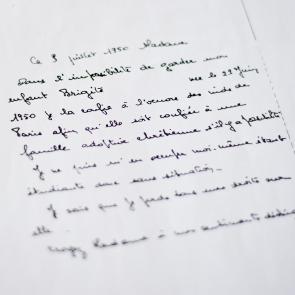 Ce 3 juillet 1950 Madame
Dans l'impossibilité de garder mon
enfant Brigitte née le 23 juin
1950 je la confie à l'oeuvre des
Paris afin qu'elle soit confiée à une
famille adoptive chrétienne s'il y a possibilité
Je ne puis m'en occupe moi-même étant
étudiante donc sans situation
Je sais que je perds tous mes droits sur
elle
Madame à mes sentiments